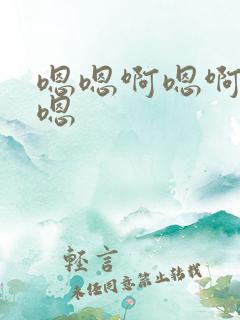 嗯嗯啊嗯啊
嗯
軽言
未经同意禁止转载